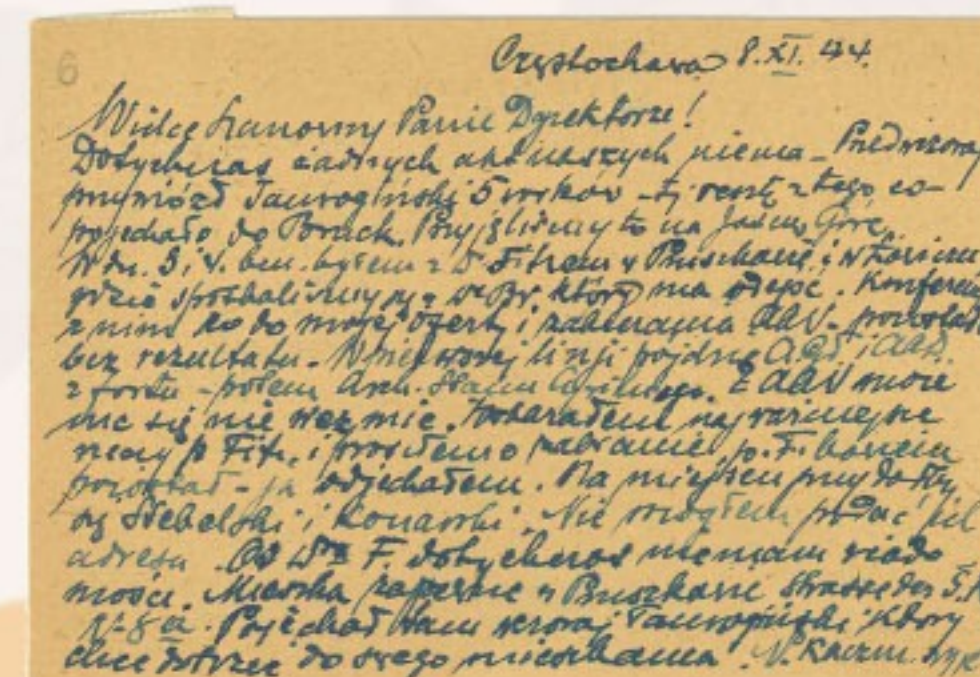 6
Częstochowa 8.XI.44.
Wielce Szanowny Panie Dyrektorze!
Dotychczas żadnych akt naszych niema – Przedwczoraj
przywiózł Taurogiński 5 worków – tj resztę z tego co –
pojechało do . Przyjęliśmy to na Jasną Górę.
W dn. 3 i 4. bm. byłem z Dr Fitzem w Pruszkowie i w
gdzie spotkaliśmy się z Br. który ma objąć. Konferen
z nim co do mojej oferty i zabierania AAN – pozostał
bez rezultatu – W pierwszej linji pójdzie AGD i AAD.
z fortu – potem Arch. . Z AAN może
nic się nie weźmie. najważniejsze
rzeczy p Fitz. i prosiłem o zabranie p. F. bowiem
pozostał – ja odjechałem. Na miejscu przydałby
się Stebelski i Konarski. Nie mogłem podać ich
adresu. Od Dra F. dotychczas niemam wiado
mości. Mieszka zapewne w Pruszkowie
. Pojechał tam wczoraj Taurogiński, który
chce dotrzeć do swego mieszkania. N.